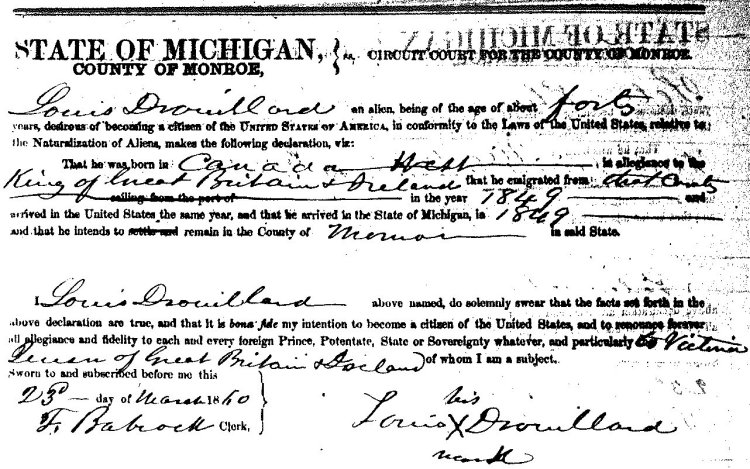 STATE OF MICHIGAN, } ss. CIRCUIT COURT FOR THE COUNTY OF MONROE.
COUNTY OF MONROE,
Louis Drouillard an alien, being of the age of about forty
years, desirous of becoming a citizen of the UNITED STATES OF AMERICA, in conformity to the Laws of the United States, relative to
the Naturalization of Aliens, makes the following declaration, viz:
That he was born in Canada West in allegiance to the
King of Great Britain & Ireland that he emigrated from that County
sailing from the port of in the year 1849 and
arrived in the United States the same year, and that he arrived in the State of Michigan, in 1849
and that he intends to settle and remain in the County of Monroe in said State.
I Louis Drouillard above named, do solemnly swear that the facts set forth in the
above declaration are true, and that it is bona fide my intention to become a citizen of the United States, and to renounce forever
all allegiance and fidelity to each and every foreign Prince, Potentate, State or Sovereignty whatever, and particularly to Victoria
Queen of Great Britain & Ireland of whom I am a subject.
Sworn to and subscribed before me this
23d day of March 1860
F. Babcock Clerk,
his
Louis X Drouillard
mark